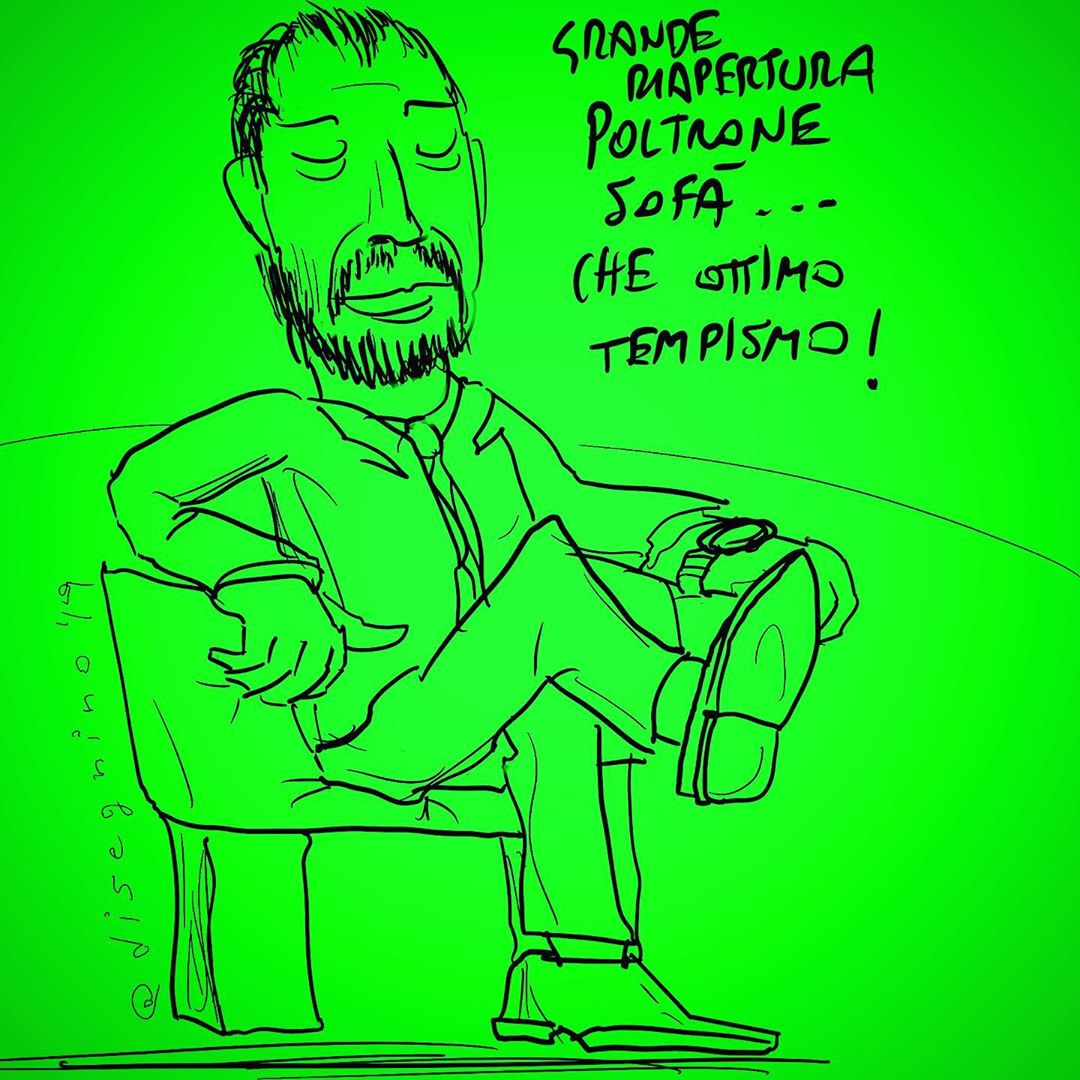 GRANDE
RIAPERTURA
POLTRONE
SOFÀ ...
CHE OTTIMO
TEMPISMO!
@disegnino '19